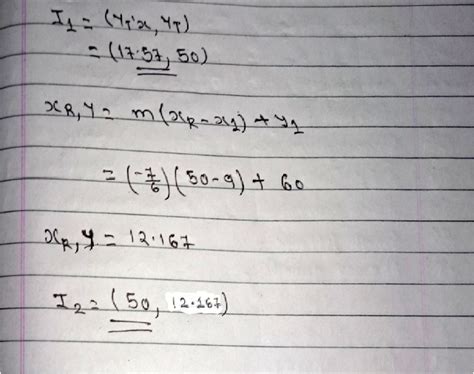 I₁ = (y_T'x, y_T)
= (17.57, 50)
x_R, y = m(x_R - x₁) + y₁
= (-7/6)(50-9) + 60
x_R, y = 12.167
I₂ = (50, 12.167)